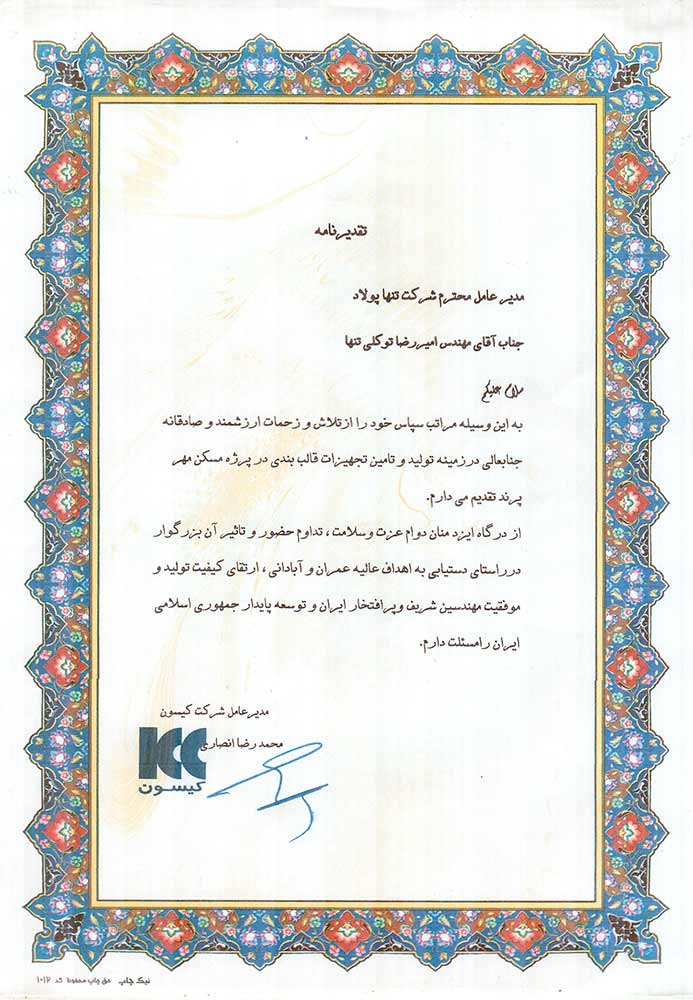 تقدیرنامه
مدیر عامل محترم شرکت تنها پولاد
جناب آقای مهندس امیر رضا توکلی تنها
سلام علیکم
به این وسیله مراتب سپاس خود را از تلاش و زحمات ارزشمند و صادقانه
جنابعالی در زمینه تولید و تامین تجهیزات قالب بندی در پرژه مسکن مهر
پرند تقدیم می دارم.
از درگاه ایزد منان دوام عزت وسلامت ، تداوم حضور و تاثیر آن بزرگوار
درراستای دستیابی به اهداف عالیه عمران و آبادانی ، ارتقای کیفیت تولید و
موفقیت مهندسین شریف وپرافتخار ایران و توسعه پایدار جمهوری اسلامی
ایران رامسئلت دارم.
مدیر عامل شرکت کیسون
محمد رضا انصاری
ICC
کیسون
نیک چاپ حق چاپ محفوظ کد ۱۰۱۲